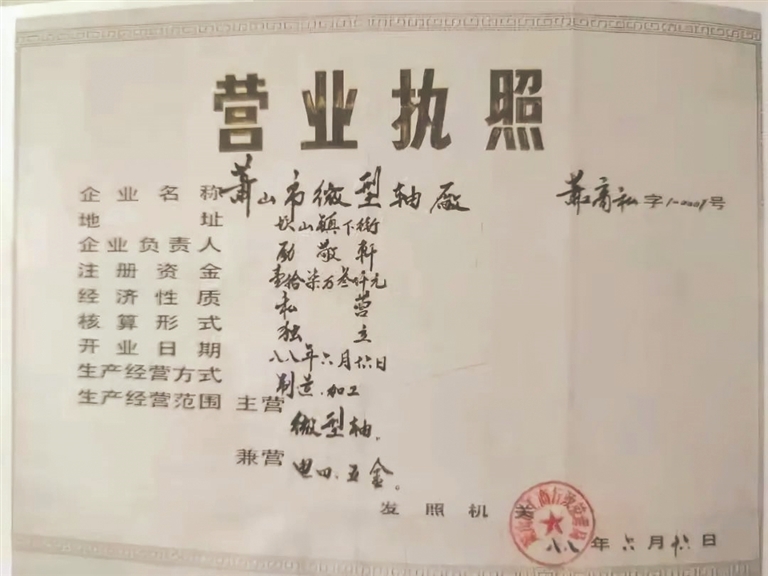 营业执照
企业名称 萧山市微型轴厂 萧商私字1-0001号
地址 坎山镇下街
企业负责人 励敬轩
注册资金 壹拾柒万叁仟元
经济性质 私营
核算形式 独立
开业日期 八八年六月廿六日
生产经营方式 制造.加工
生产经营范围 主营 微型轴。
兼营 电四.五金。
发照机关
八八年六月廿六日